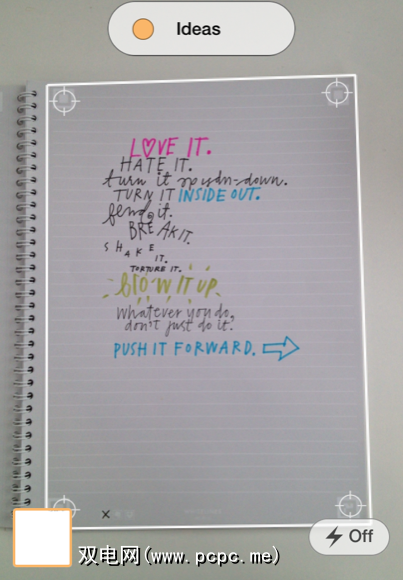 Ideas
LOVE IT.
HATE IT.
turn it upsdn-down.
TURN IT INSIDE OUT.
bend it.
BREAK IT.
SHAKE
IT.
TORTURE IT.
BLOW IT UP.
whatever you do,
don't just do it?
PUSH IT FORWARD.
Off
双电网(www.pcpc.me)